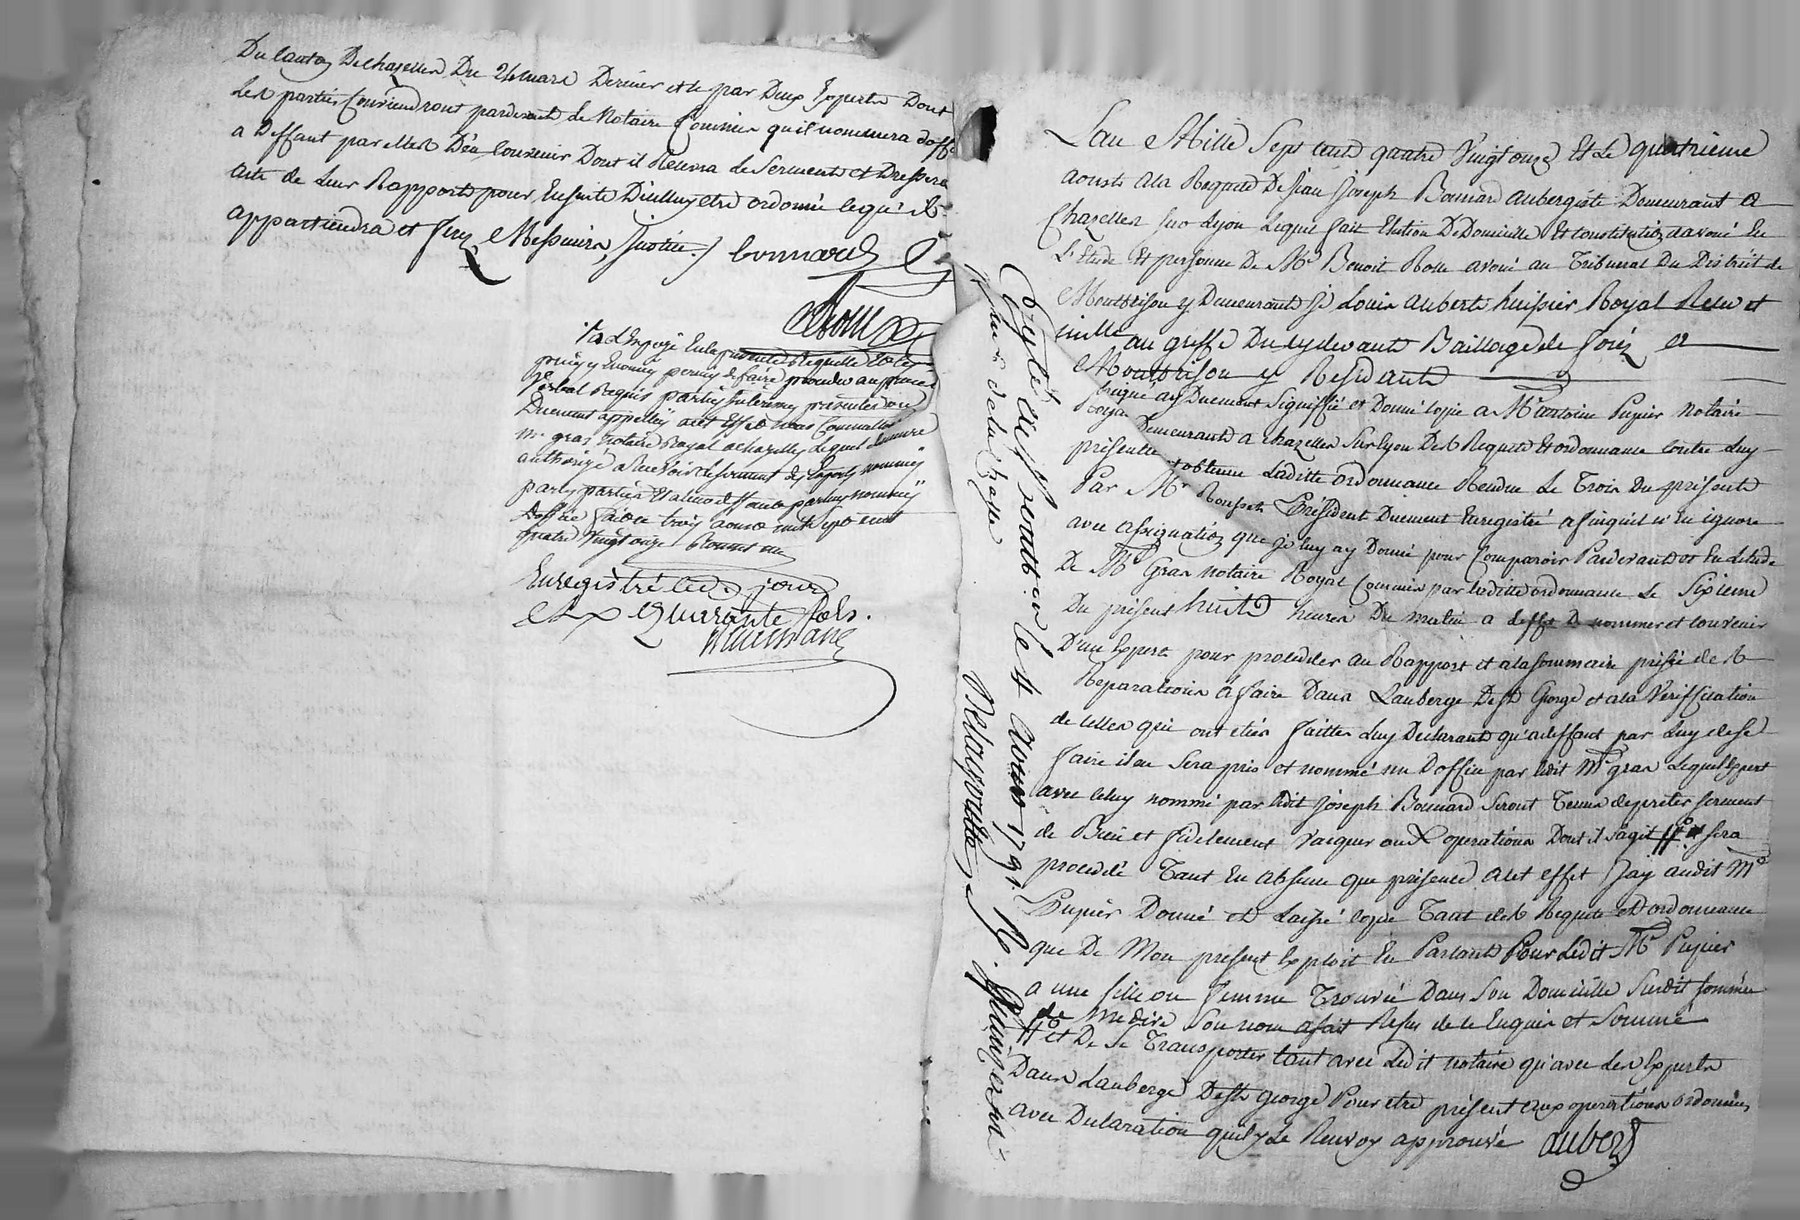 Du Canton De chazelles Du 24 mars Dernier et ce par Deux Experts Dont
les parties Conviendront pardevant le Notaire Commis qu'il nommera doffice
a Deffaut par elles D'en Convenir Dont il Recevra le Serment et Dressera
acte de leur Rapport pour Ensuite D'icelluy etre ordonné ce qu'il
appartiendra et ferez Messieurs, Justice./ bonnard
Rolle
Vu L'Exposé En la presente Requette
permis de faire proceder au procé
verbal Requis parties Interessées presentes ou
Duement appellées a cet Effet Nous Commettons
Mr gras Notaire Royal a chazelles lequel demeure
authorisé a Recevoir le serment des Experts nommés
par les parties Et a leur deffaut par luy nommés
Doffice fait ce trois aoust mil sept cent
quatre vingt onze
Enregistré led. jour
quarante sols.
L'an Mille Sept cent quatre Vingt onze Et Le quatrieme
aoust a la Requete De Jean Joseph Bonnard aubergiste Demeurant a
Chazelles sur Lyon Lequel fait Election De Domicille Et Constitution d'avoué En
L'Etude Et personne De Mr Benoit Rolle avoué au Tribunal Du District de
Montbrison y Demeurant Je Louis Aubert huissier Royal Recu et
immatriculé au greffe Du cy devant Baillage de forez a
Montbrison y Residant
soussigné ay Duement Signiffié et Donné Copie a Mr antoine Pupier Notaire
Royal Demeurant a chazelles Sur Lyon Des Requete Et ordonnance Contre Luy
presentée et obtenue Laditte ordonnance Rendue Le Trois Du present
Par Mr Rousset President Duement Enregistré a finqu'il n'En ignore
avec assignation que Je luy ay Donné pour Comparoir Pardevant et En L'etude
De Me Gras Notaire Royal Commis par laditte ordonnance Le Sixieme
Du present huit heures Du matin a Leffet De nommer et Convenir
D'un Expert pour proceder au Rapport et a la Sommaire prisée des
Reparations a faire Dans L'auberge De St George et a la Veriffication
de celles qui ont étées faittes Luy Declarant qu'a deffaut par Luy de ce
faire il en Sera pris et nommé un Doffice par ledit Me gras Lequel Expert
avec celuy nommé par ledit Joseph Bonnard Seront Tenus de preter serment
de Bien et fidelement vacquer aux operations Dont il s'agit # Et sera
procedé Tant En absence que presence a cet effet J'ay audit Me
Pupier Donné et Laissé Copie Tant des Requete et ordonnance
que De Mon present Exploit En Parlant Pour Ledit Mr Pupier
a une fille ou femme Trouvée Dans Son Domicille Susdit sommée
de me dire Son nom a fait Refus de ce Enquise et Sommé
# et De Se Transporter tant avec Ledit notaire qu'avec Les Experts
Dans L'auberge De St George Pour etre present aux operations ordonnées
avec Declaration Le Renvoy approuvé aubert